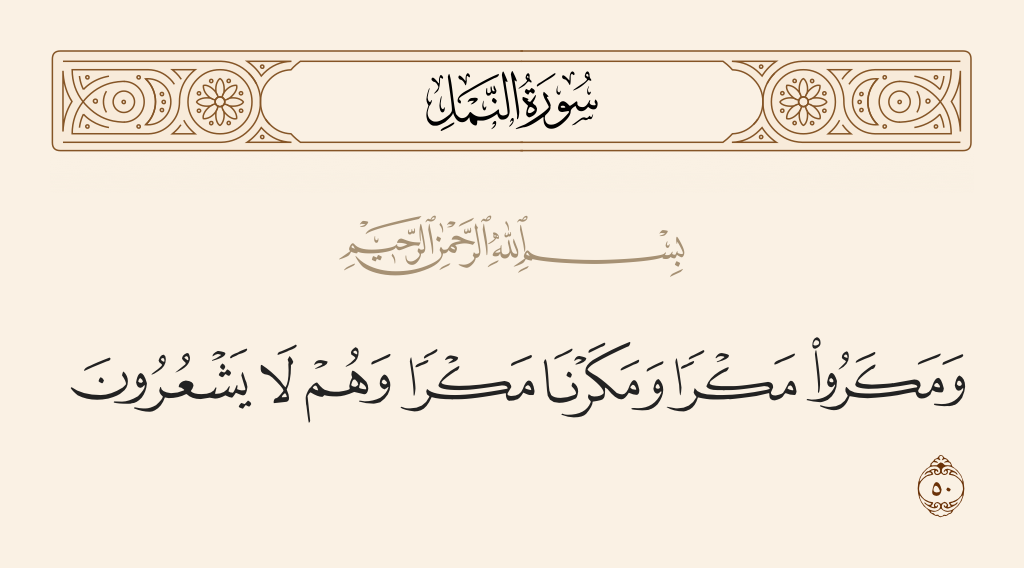 سُورَةُ النَّمْلِ
بِسْمِ ٱللَّهِ ٱلرَّحْمَٰنِ ٱلرَّحِيمِ
وَمَكَرُوا۟ مَكْرًا وَمَكَرْنَا مَكْرًا وَهُمْ لَا يَشْعُرُونَ
٥٠